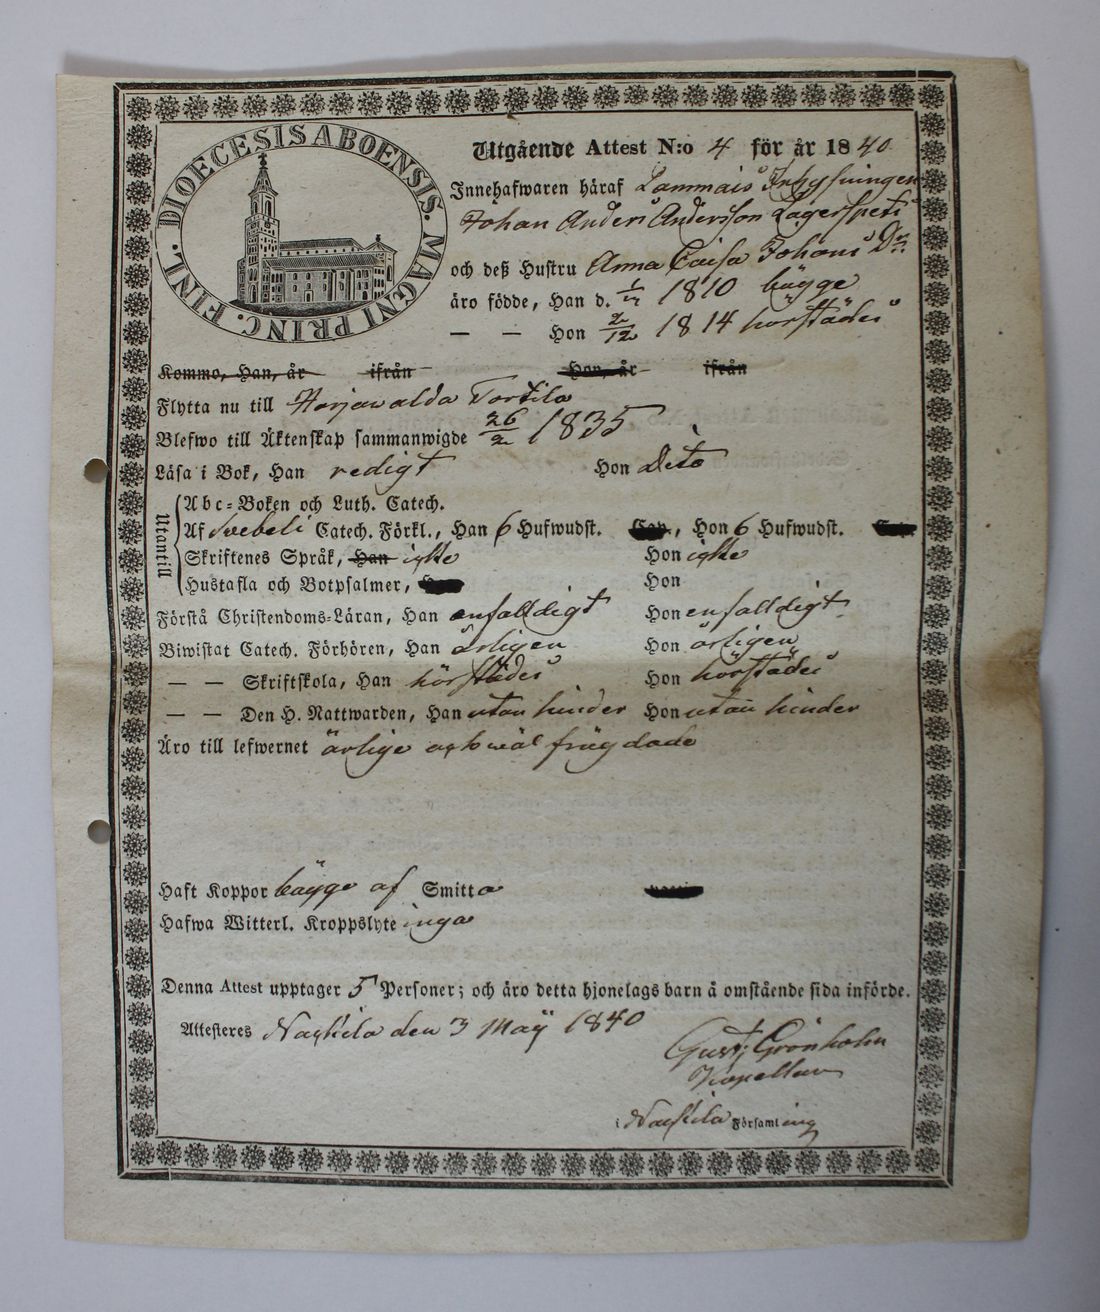 DIOECESIS ABOENSIS. MAGNI PRINC. FINL.
Utgående Attest N:o 4 för år 1840
Innehafwaren häraf Lammais Inhysningen
Johan Anders Andersson Lagerspets
och deß Hustru Anna Caisa Johans Dr
äro födde, Han d. 1810 bägge
— — Hon 2/12 1814 härstädes
Kommo, Han, år ifrån Hon, år ifrån
Flytta nu till Harjawalda Torttila
Blefwo till Äktenskap sammanwigde 26/2 1835
Läsa i Bok, Han redigt Hon dito
Utantill
Abc-Boken och Luth. Catech.
Af Svebeli Catech. Förkl., Han 6 Hufwudst. Cap., Hon 6 Hufwudst. Cap.
Skriftenes Språk, Han icke Hon icke
Hustafla och Botpsalmer, Hon
Förstå Christendoms-Läran, Han enfalldigt Hon enfalldigt
Biwistat Catech. Förhören, Han årligen Hon årligen
— — Skriftskola, Han härstädes Hon härstädes
— — Den H. Nattwarden, Han utan hinder Hon utan hinder
Äro till lefwernet ärlige och wäl frägdade
Haft Koppor bägge af Smitta
Hafwa Witterl. Kroppslyte inga
Denna Attest upptager 5 Personer; och äro detta hjonelags barn å omstående sida införde.
Attesteres Nackila den 3 Maÿ 1840
Gust. Grönholm
Kapellan
i Nackila Församling